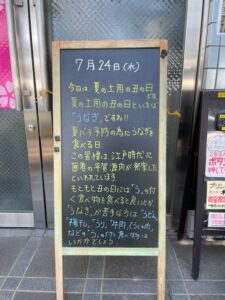 7月24日(水)
今日は 夏の土用の丑の日
夏の土用の丑の日といえば
"うなぎ"ですね!!
夏バテ予防の為にうなぎを
食べる日
この習慣は 江戸時代に
医者の平賀源内が発案した
といわれています
もともと丑の日には「う」の付
く食べ物を食べると良いとか
"うなぎ"が苦手な方は"うどん
"梅干し" "うり" "牛肉(うし)の肉
などの"う"の付く食べ物は
いかがでしょう